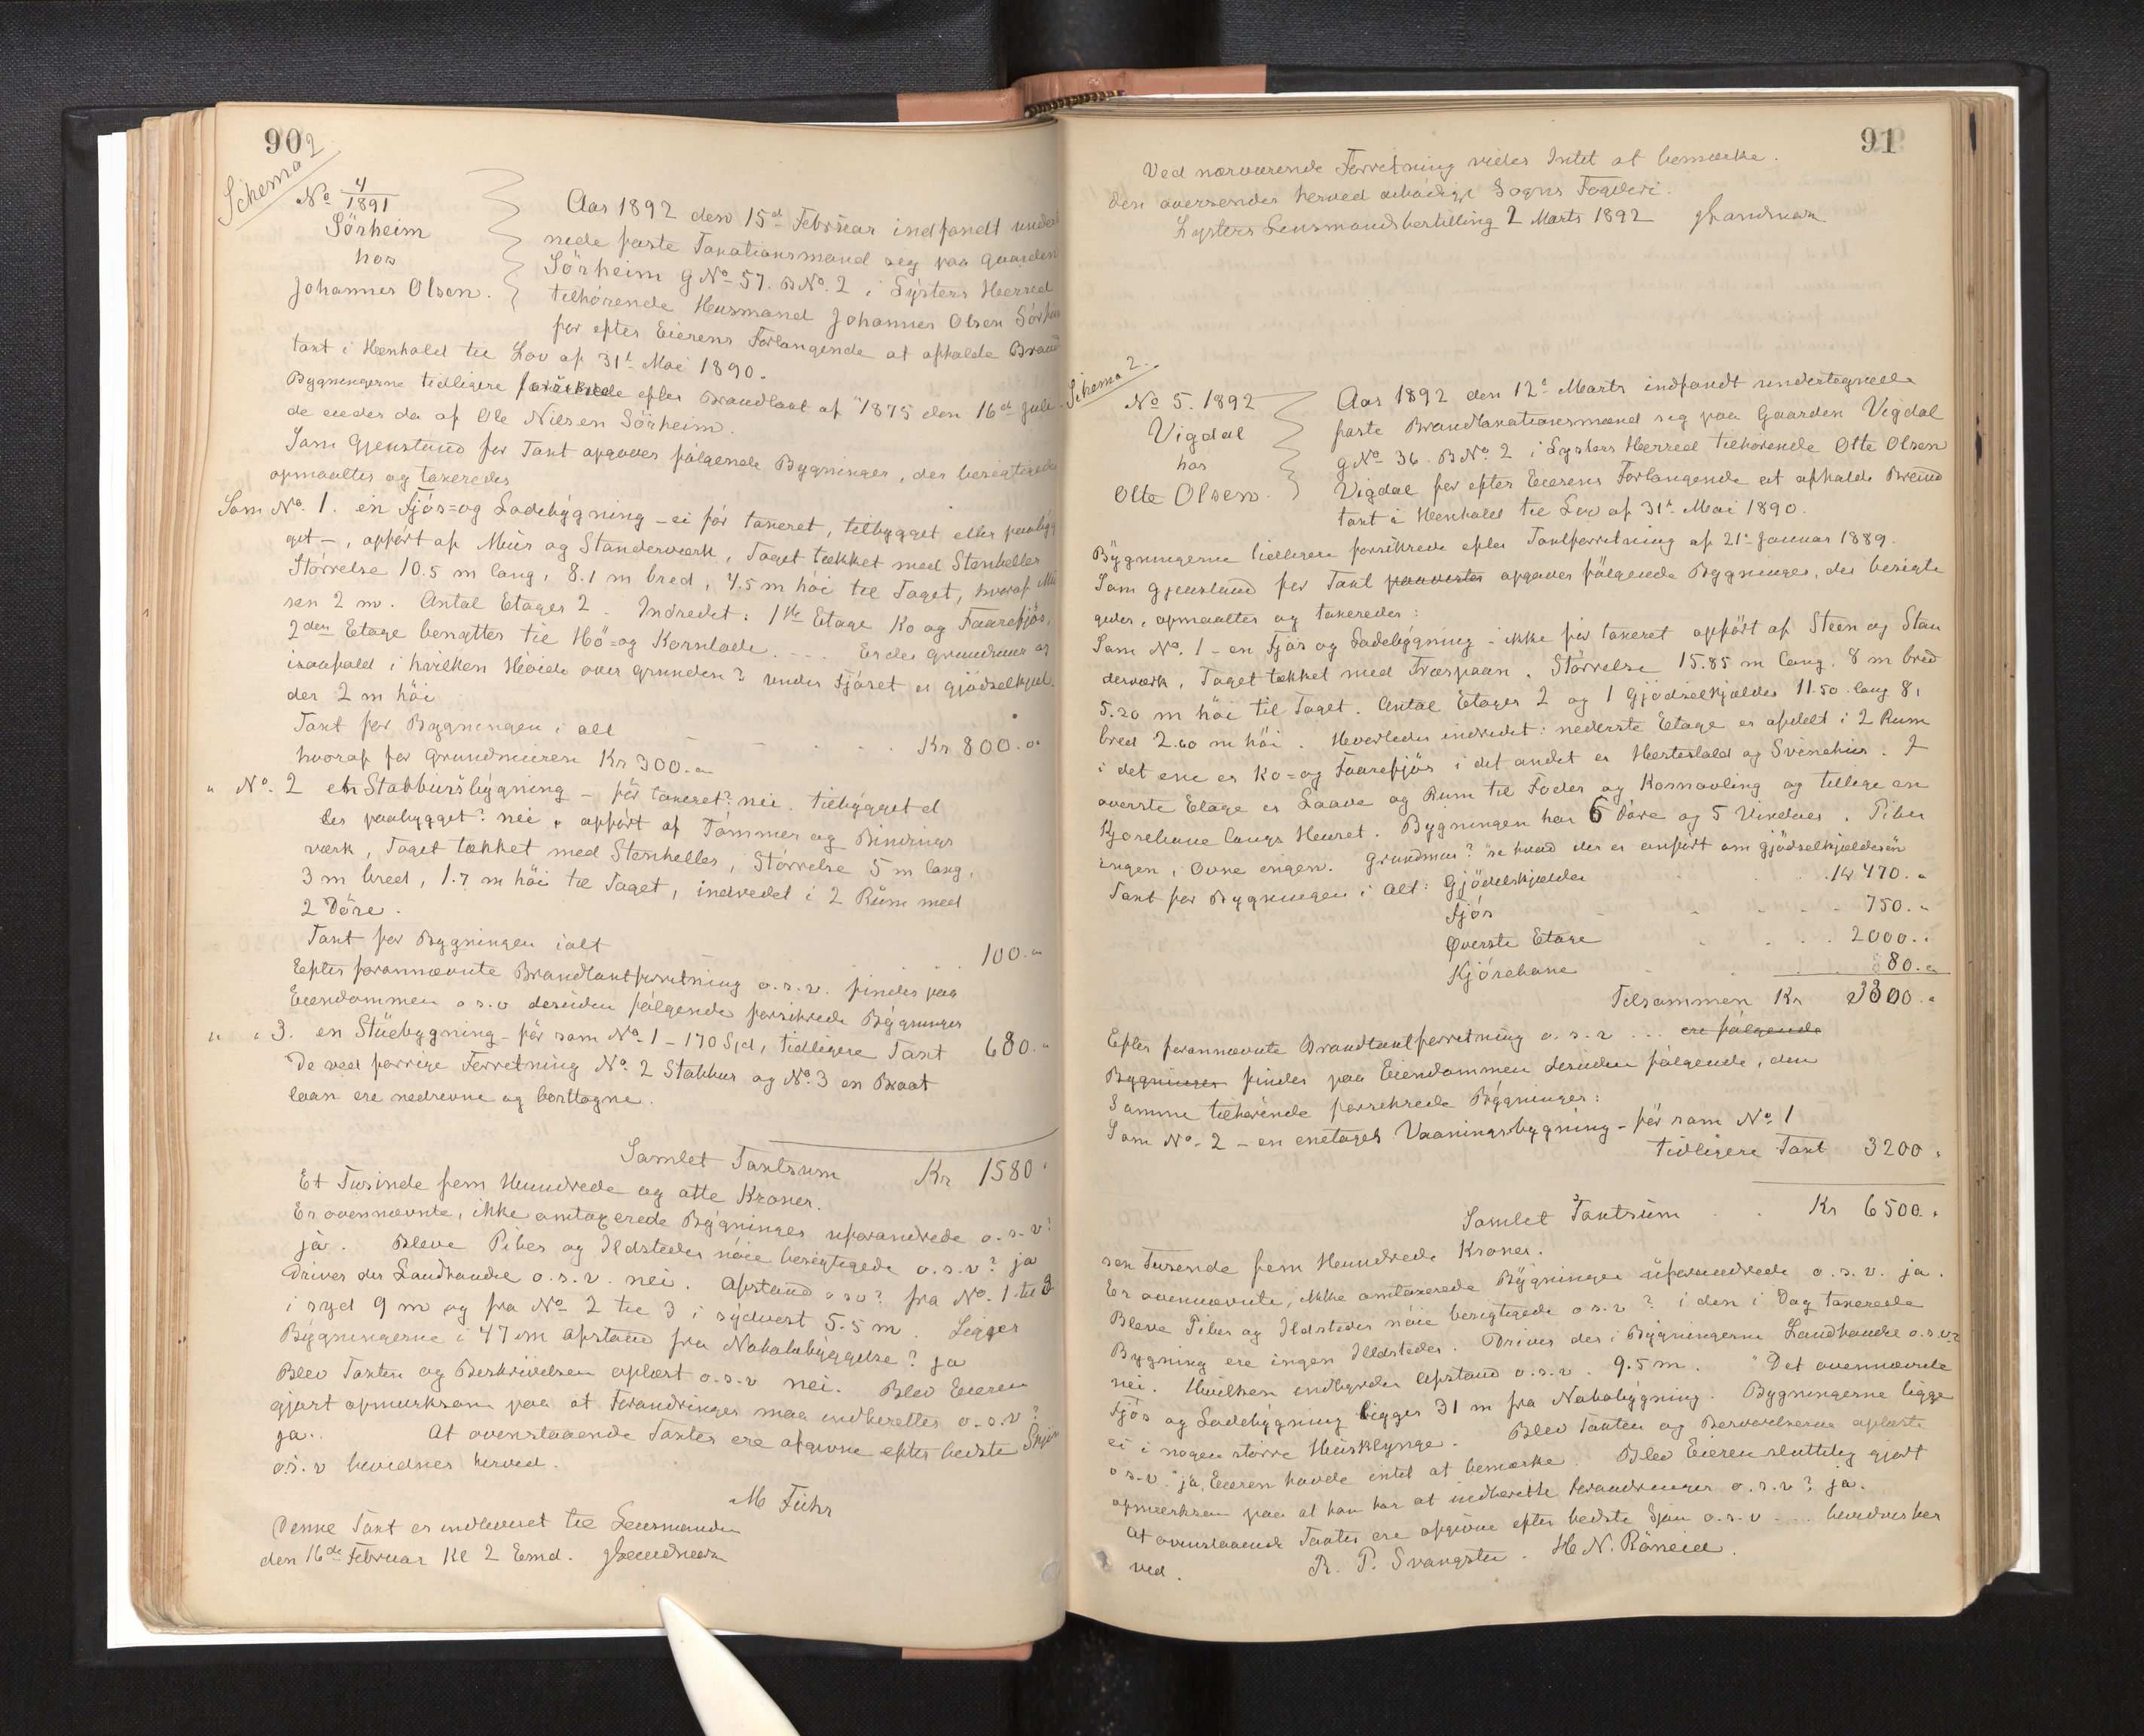 90
Schema 2
No 4/1891
Sörheim
hos
Johannes Olsen.
Aar 1892 den 15d Februar indfandt under
nede faste Taxationsmænd seg paa Gaarden
Sörheim GNo 57. BNo. 2 i Lysters Herred
tilhörende Husmand Johannes Olsen Sörheim
for efter Eierens Forlangende at afholde Brand
taxt i Henhold til Lov af 31t Mai 1890.
Bygningerne tidligere forsikrede efter Brandtaxt af 1875 den 16d Juli
de eiedes da af Ole Nilsen Sörheim.
Som Gjenstand for Taxt opgaves fölgende Bygninger, der besigtigedes
opmaaltes og taxeredes
Som No. 1. en Fjös= og Ladebygning - ei för taxeret, tilbygget eller paabyg
get -, opfört af Muur og Standerværk, Taget tækket med Stenheller
Störrelse 10.5 m lang, 8.1 m bred, 4.5 m höi til Taget, hvoraf Mu
ren 2 m. Antal Etager 2. Indredet: 1ste Etage Ko og Faarefjös,
2den Etage benyttes til Hö= og Kornlade. - - - Er der Grundmur og
isaafald i hvilken Höide over Grunden? under Fjöset er gjödselkjæl
der 2 m höi
Taxt for Bygningen i alt Kr 800. "
hvoraf for Grundmuren Kr 300. "
" No. 2 en Stabbursbygning - för taxeret? nei. tilbygget el
ler paabygget? nei, opfört af Tömmer og Bindings
værk, Taget tækket med Stenheller, Störrelse 5 m lang,
3 m bred, 1.7 m höi til Taget, indredet i 2 Rum med
2 Döre.
Taxt for Bygningen ialt 100. "
Efter forannævnte Brandtaxtforretning o.s.v. findes paa
Eiendommen o s.v desuden fölgende forsikrede Bygninger
" " 3. en Stuebygning - för som No. 1 - 170 Spd, tidligere Taxt 680. "
De ved forrige Forretning No. 2 Stabbur og No. 3 en Braat
laan ere nedrevne og borttagne.
Samlet Taxtsum Kr 1580 "
Et Tusinde fem Hundrede og otte Kroner.
Er ovennævnte, ikke omtaxerede Bygninger uforandrede o.s.v?
ja. Bleve Piber og Ildsteder nöie besigtigede o.s.v? ja
Drives der Landhandel o.s.v. nei. Afstand o s v? fra No. 1 til 3
i syd 9 m og fra No 2 til 3 i sydvest 5.5 m. Ligger
Bygningerne i 47 m Afstand fra Nabobebyggelse? ja
Blev Taxten og Beskrivelsen oplæst o.s.v nei. Blev Eieren
gjort opmerksom paa at Forandringer maa indberettes o.s.v?
ja. At ovenstaaende Taxter ere afgivne efter bedste Skjön
o.s.v bevidnes herved.
M Fuhr
Denne Taxt er indleveret til Lensmanden
den 16de Februar Kl 2 Emd.
91
Ved nærværende Forretning vides Intet at bemærke.
Den oversendes herved Sogns Fogderi.
Lysters Lensmandsbestilling 2 Marts 1892
Schema 2.
No 5. 1892
Vigdal
hos
Otte Olsen.
Aar 1892 den 12t Marts indfandt undertegnede
faste Brandtaxationsmænd seg paa Gaarden Vigdal
GNo 36. BNo. 2 i Lysters Herred tilhörende Otte Olsen
Vigdal for efter Eierens Forlangende at afholde Brand
taxt i Henhold til Lov af 31t Mai 1890.
Bygningerne tidligere forsikrede efter Taxtforretning af 21t Januar 1889.
Som Gjenstand for Taxt opgaves fölgende Bygninger, der besigti
gedes, opmaaltes og taxeredes:
Som No. 1 - en Fjös og Ladebygning - ikke för taxeret opfört af Steen og Stan
derværk, Taget tækket med Træspaan. Störrelse 15.85 m lang. 8 m bred
5.20 m höi til Taget. Antal Etager 2 og 1 Gjödselkjælder 11.50 lang 8,
bred 2.60 m höi. Hvorledes indredet: nederste Etage er afdelt i 2 Rum
i det ene er Ko= og Faarefjös i det andet er Hestestald og Svinehus. I
överste Etage er Laave og Rum til Foder og Kornavling og tillige en
Kjörebane langs Huset. Bygningen har 6 Döre og 5 Vinduer. Piber
ingen, Ovne ingen. Grundmur? "se hvad der er anfört om gjödselkjælderen
Taxt for Bygningen i Alt: Gjödselkjælder Kr 470. "
Fjös 750. "
Överste Etage 2000. "
Kjörebane 80. "
Tilsammen Kr 3300. "
Efter forannævnte Brandtaxtforretning o. s. v ... ere fölgende
Bygninger findes paa Eiendommen desuden fölgende, den
Samme tilhörende forsikrede Bygninger:
Som No. 2 - en enetages Vaaningsbygning - för som No. 1
tidligere Taxt 3200 "
Samlet Taxtsum Kr 6500. "
sex Tusende fem Hundrede Kroner.
Er ovennævnte, ikke omtaxerede Bygninger uforandrede o. s. v. ja.
Bleve Piber og Ildsteder nöie besigtigede o s. v? i den i Dag taxerede
Bygning ere ingen Ildsteder. Drives der i Bygningerne Landhandel o.s.v?
nei. Hvilken indbyrdes Afstand o.s.v. 9.5 m. "Det ovennævnte
Fjös og Ladebygning ligger 31 m fra Nabobygning. Bygningerne ligge
ei i nogen större Husklynge. Blev Taxten og Beskrivelserne oplæste
o s.v. "ja, Eieren havde intet at bemærke. Blev Eieren sluttelig gjort
opmerksom paa at han har at indberette Forandringer o. s. v? ja.
At ovenstaaende Taxter ere afgivne efter bedste Skjön o.s.v .... bevidnes her
ved. R. P. Svangstu. H N. Röneid.